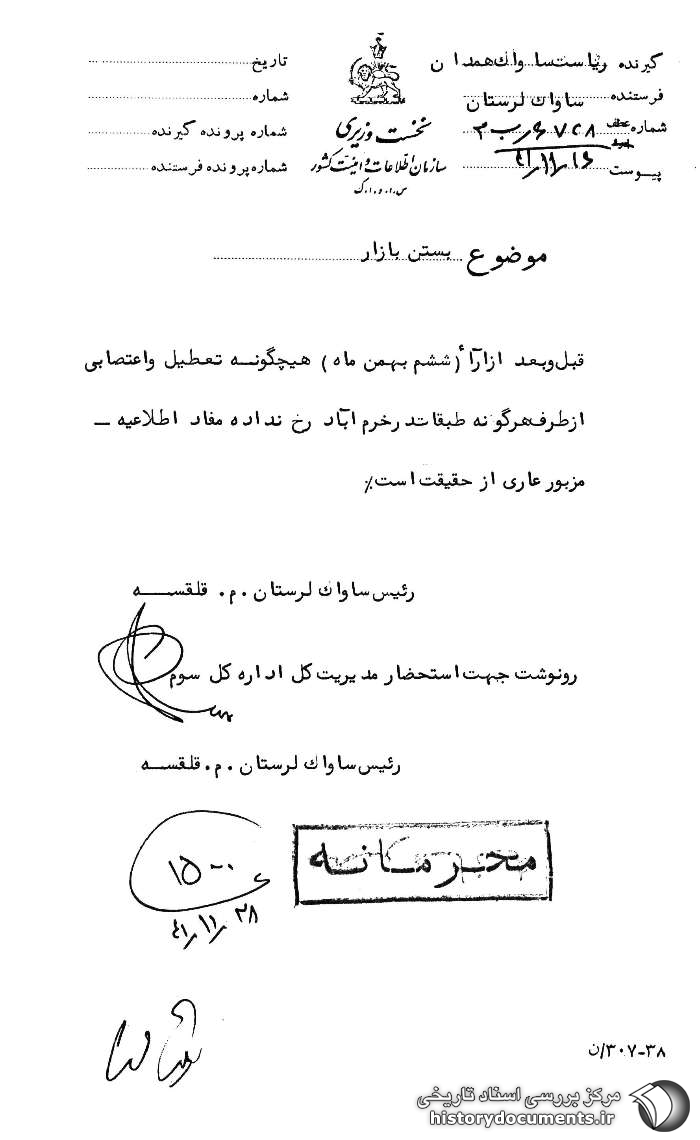 گیرنده ریاست ساواك همدان
فرستنده ساواك لرستان
شماره عطف
پیوست ۴۱/۱۱/۱۶
نخست وزیری
سازمان اطلاعات و امنیت کشور
س.ا.و.ا.ک
تاریخ
شماره
شماره پرونده گیرنده
شماره پرونده فرستنده
موضوع بستن بازار
قبل وبعد ازآراٴ (ششم بهمن ماه) هیچگونه تعطیل واعتصابی
ازطرف هرگونه طبقات درخرم آباد رخ نداده مفاد اطلاعیه –
مزبور عاری از حقیقت است٪
رئیس ساواك لرستان . م . قلقسه
رونوشت جهت استحضار مدیریت کل اداره کل سوم
رئیس ساواك لرستان . م . قلقسه
محرمانه
۱۵۰۰
۴۱/۱۱/۲۸
۳۰۷-۳۸/ن
مرکز بررسی اسناد تاریخی
historydocuments.ir